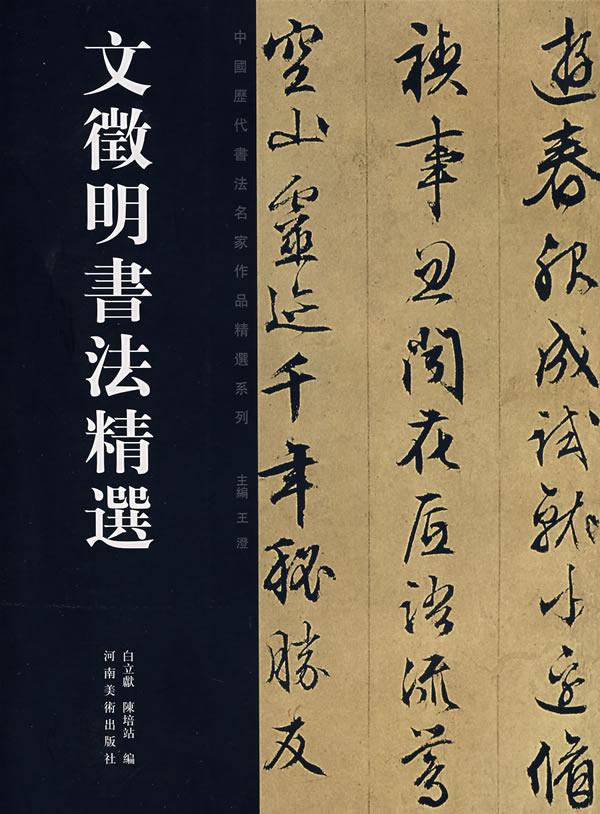 文徵明書法精選
中國歷代書法名家作品精選系列 主編 王澄
白立獻 陳培站 編
河南美術出版社
遊春服成試就水邊脩
禊事忽聞花底語流鶯
空山靈迹千年秘勝友